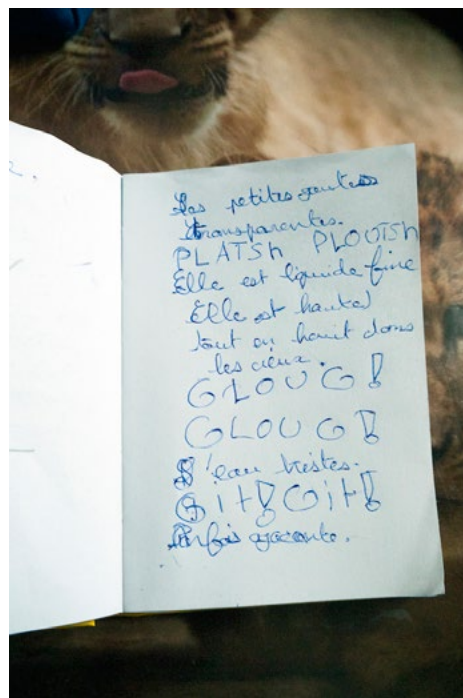 Les petites goutes
transparentes.
PLATSh PLOUTSh
Elle est liquide fine
Elle est haute
tout en haut dans
les cieux.
GLOUG!
GLOUG!
L'eau tristes.
Git! Git!
Parfois agacante.